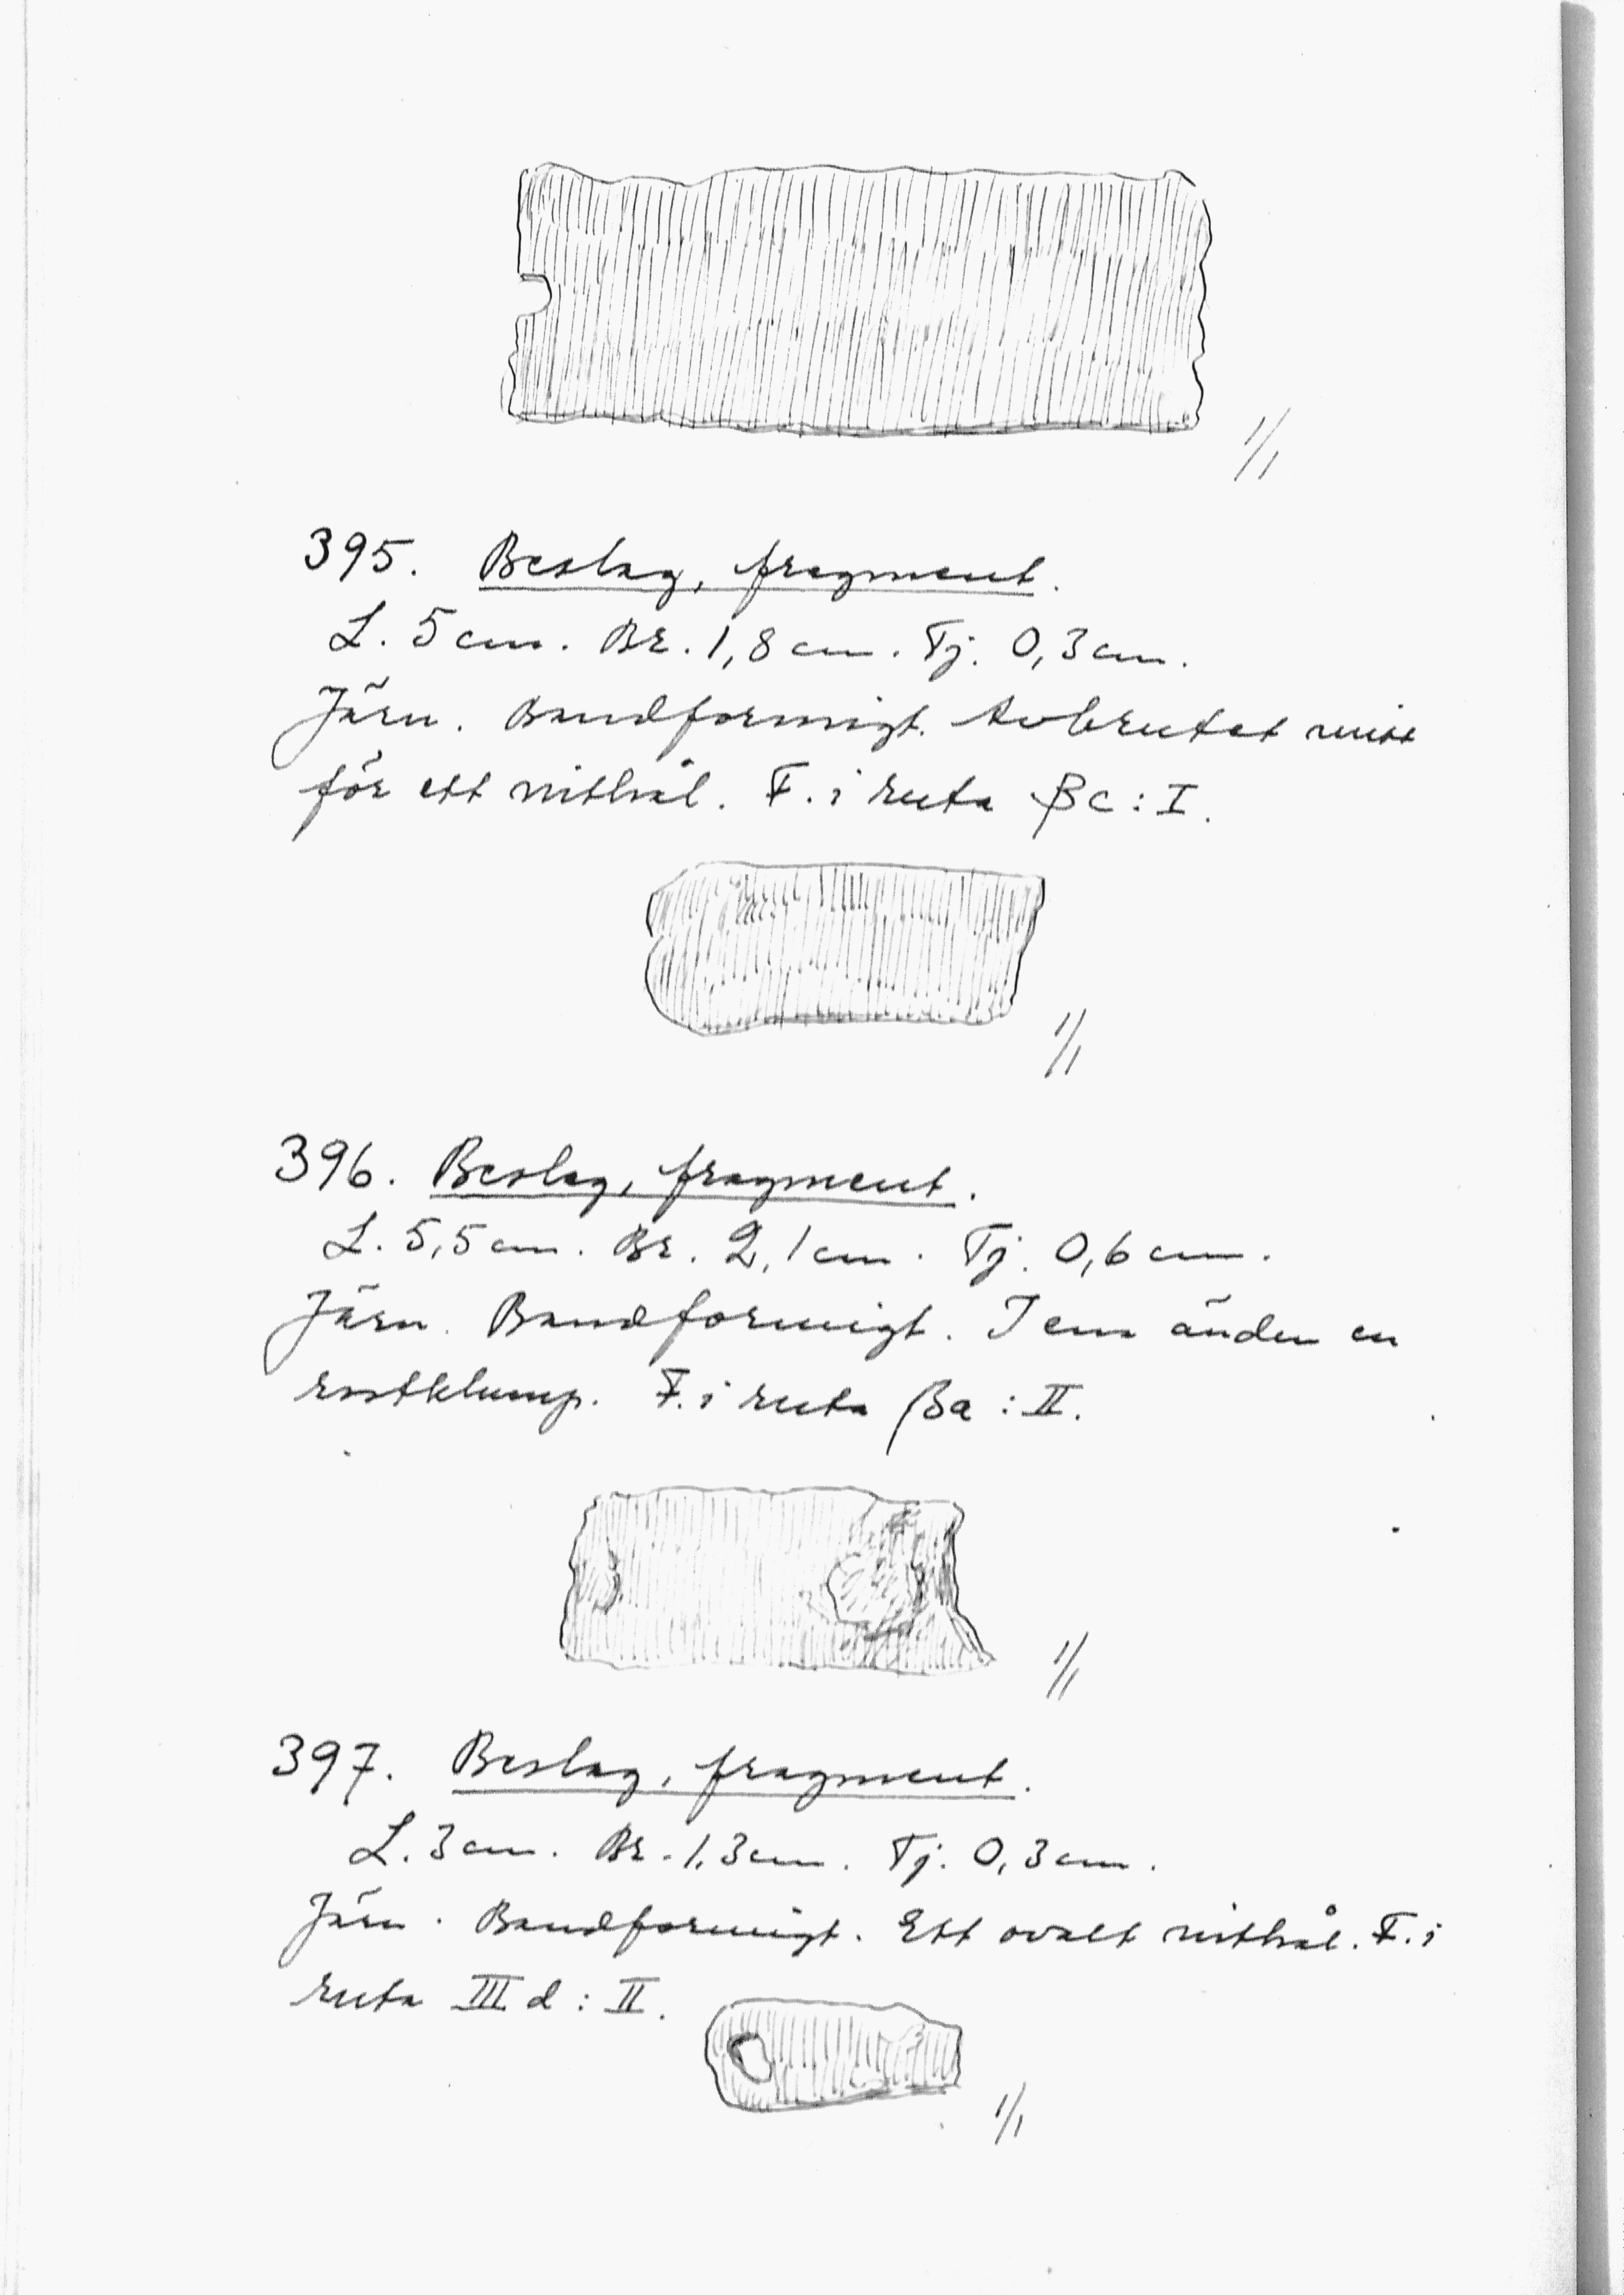 1/1
395. Beslag, fragment.
L. 5 cm. Br. 1,8 cm. Tj. 0,3 cm.
Järn. Bandformigt. Avbrutet mitt
för ett nithål. F. i ruta βc : I.
1/1
396. Beslag, fragment.
L. 5,5 cm. Br. 2,1 cm. Tj. 0,6 cm.
Järn. Bandformigt. I ena änden en
rostklump. F. i ruta βa : II.
1/1
397. Beslag, fragment.
L. 3 cm. Br. 1,3 cm. Tj. 0,3 cm.
Järn. Bandformigt. Ett ovalt nithål. F. i
ruta III d : II.
1/1